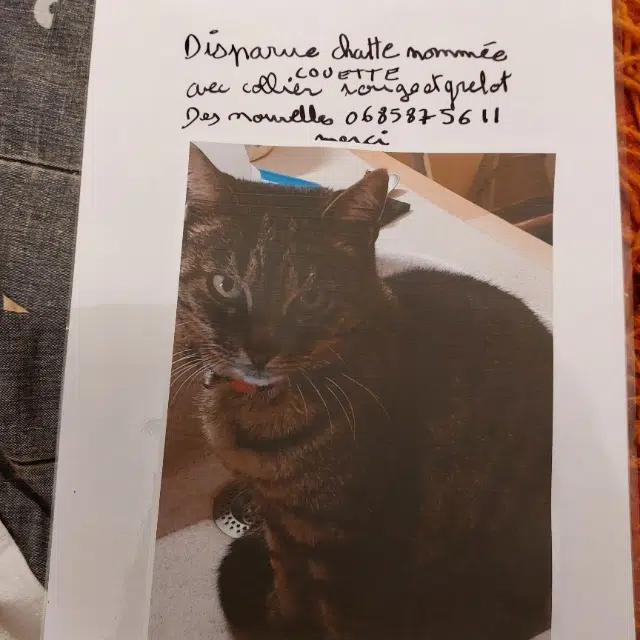 Disparue chatte nommée
COUETTE
avec collier rouge et grelot
Des nouvelles 0685875611
merci